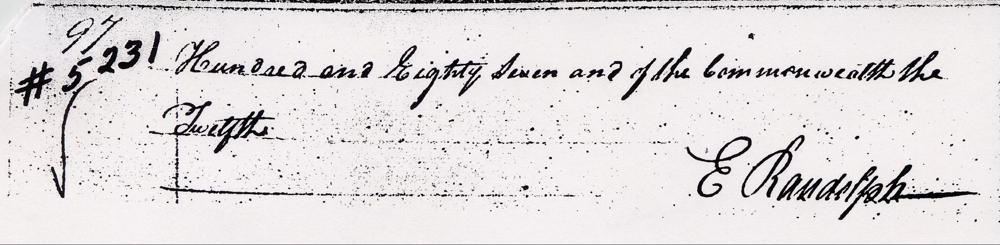 97
#5231
Hundred and Eighty Seven and of the Commonwealth the
Twelfth
E Randolph